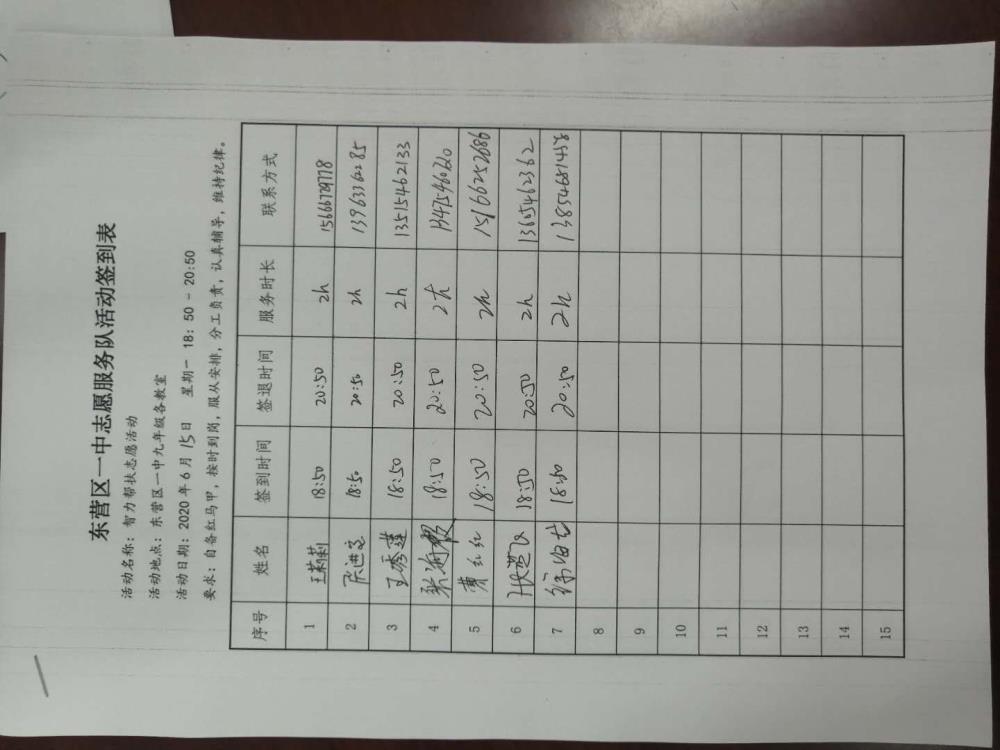 东营区一中志愿服务队活动签到表
活动名称：智力帮扶志愿活动
活动地点：东营区一中九年级各教室
活动日期：2020年6月15日 星期一 18：50－20:50
要求：自备红马甲，按时到岗，服从安排，分工负责，认真辅导，维持纪律。
序号 姓名 签到时间 签退时间 服务时长 联系方式
1 王莉莉 18:50 20:50 2h 15666729778
2 18:50 20:50 2h 13963362285
3 王秀莲 18:50 20:50 2h 13515462133
4 18:50 20:50
5 曹红红 18:50 20:50 2h 15166252686
6 18:50 20:50 2h 13605462362
7 18:50 20:50 2h 13854681458
8
9
10
11
12
13
14
15